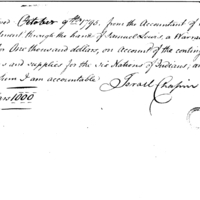 October 9th 1793. from the Accountant of
through the hands of Samuel Lewis, a Warran
One thousand dollars, on Account of the conting
s and supplies for the Six Nations of Indians, 
I am accountable
Israel Chapin
1000